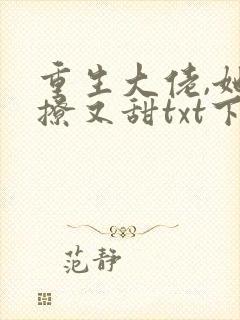 重生大佬,她
撩又甜txt下
范静